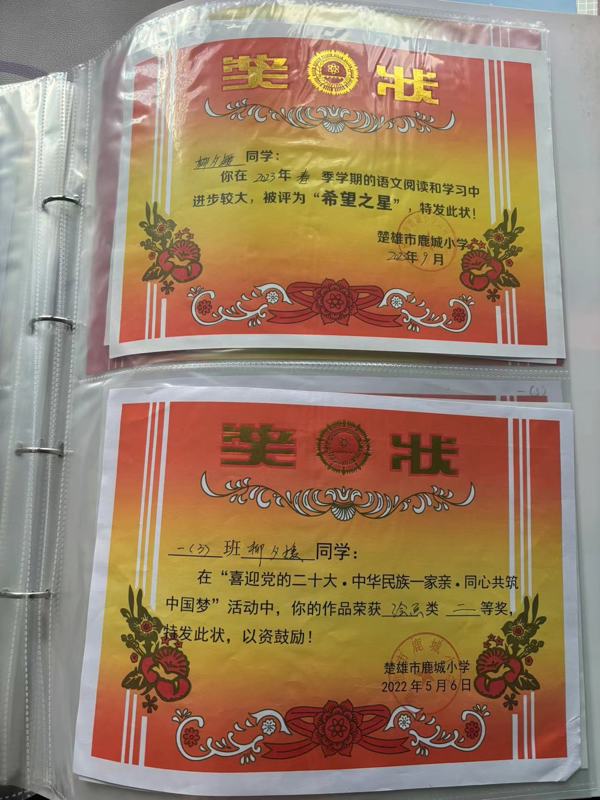 奖 状
柳夕媛 同学：
你在 2023 年 春 季学期的语文阅读和学习中
进步较大，被评为“希望之星”，特发此状！
楚雄市鹿城小学
2023年 9 月
一(3)
奖 状
一(3) 班 柳夕媛 同学：
在“喜迎党的二十大·中华民族一家亲·同心共筑
中国梦”活动中，你的作品荣获 绘画 类 二 等奖，
特发此状，以资鼓励！
楚雄市鹿城小学
2022 年 5 月 6 日